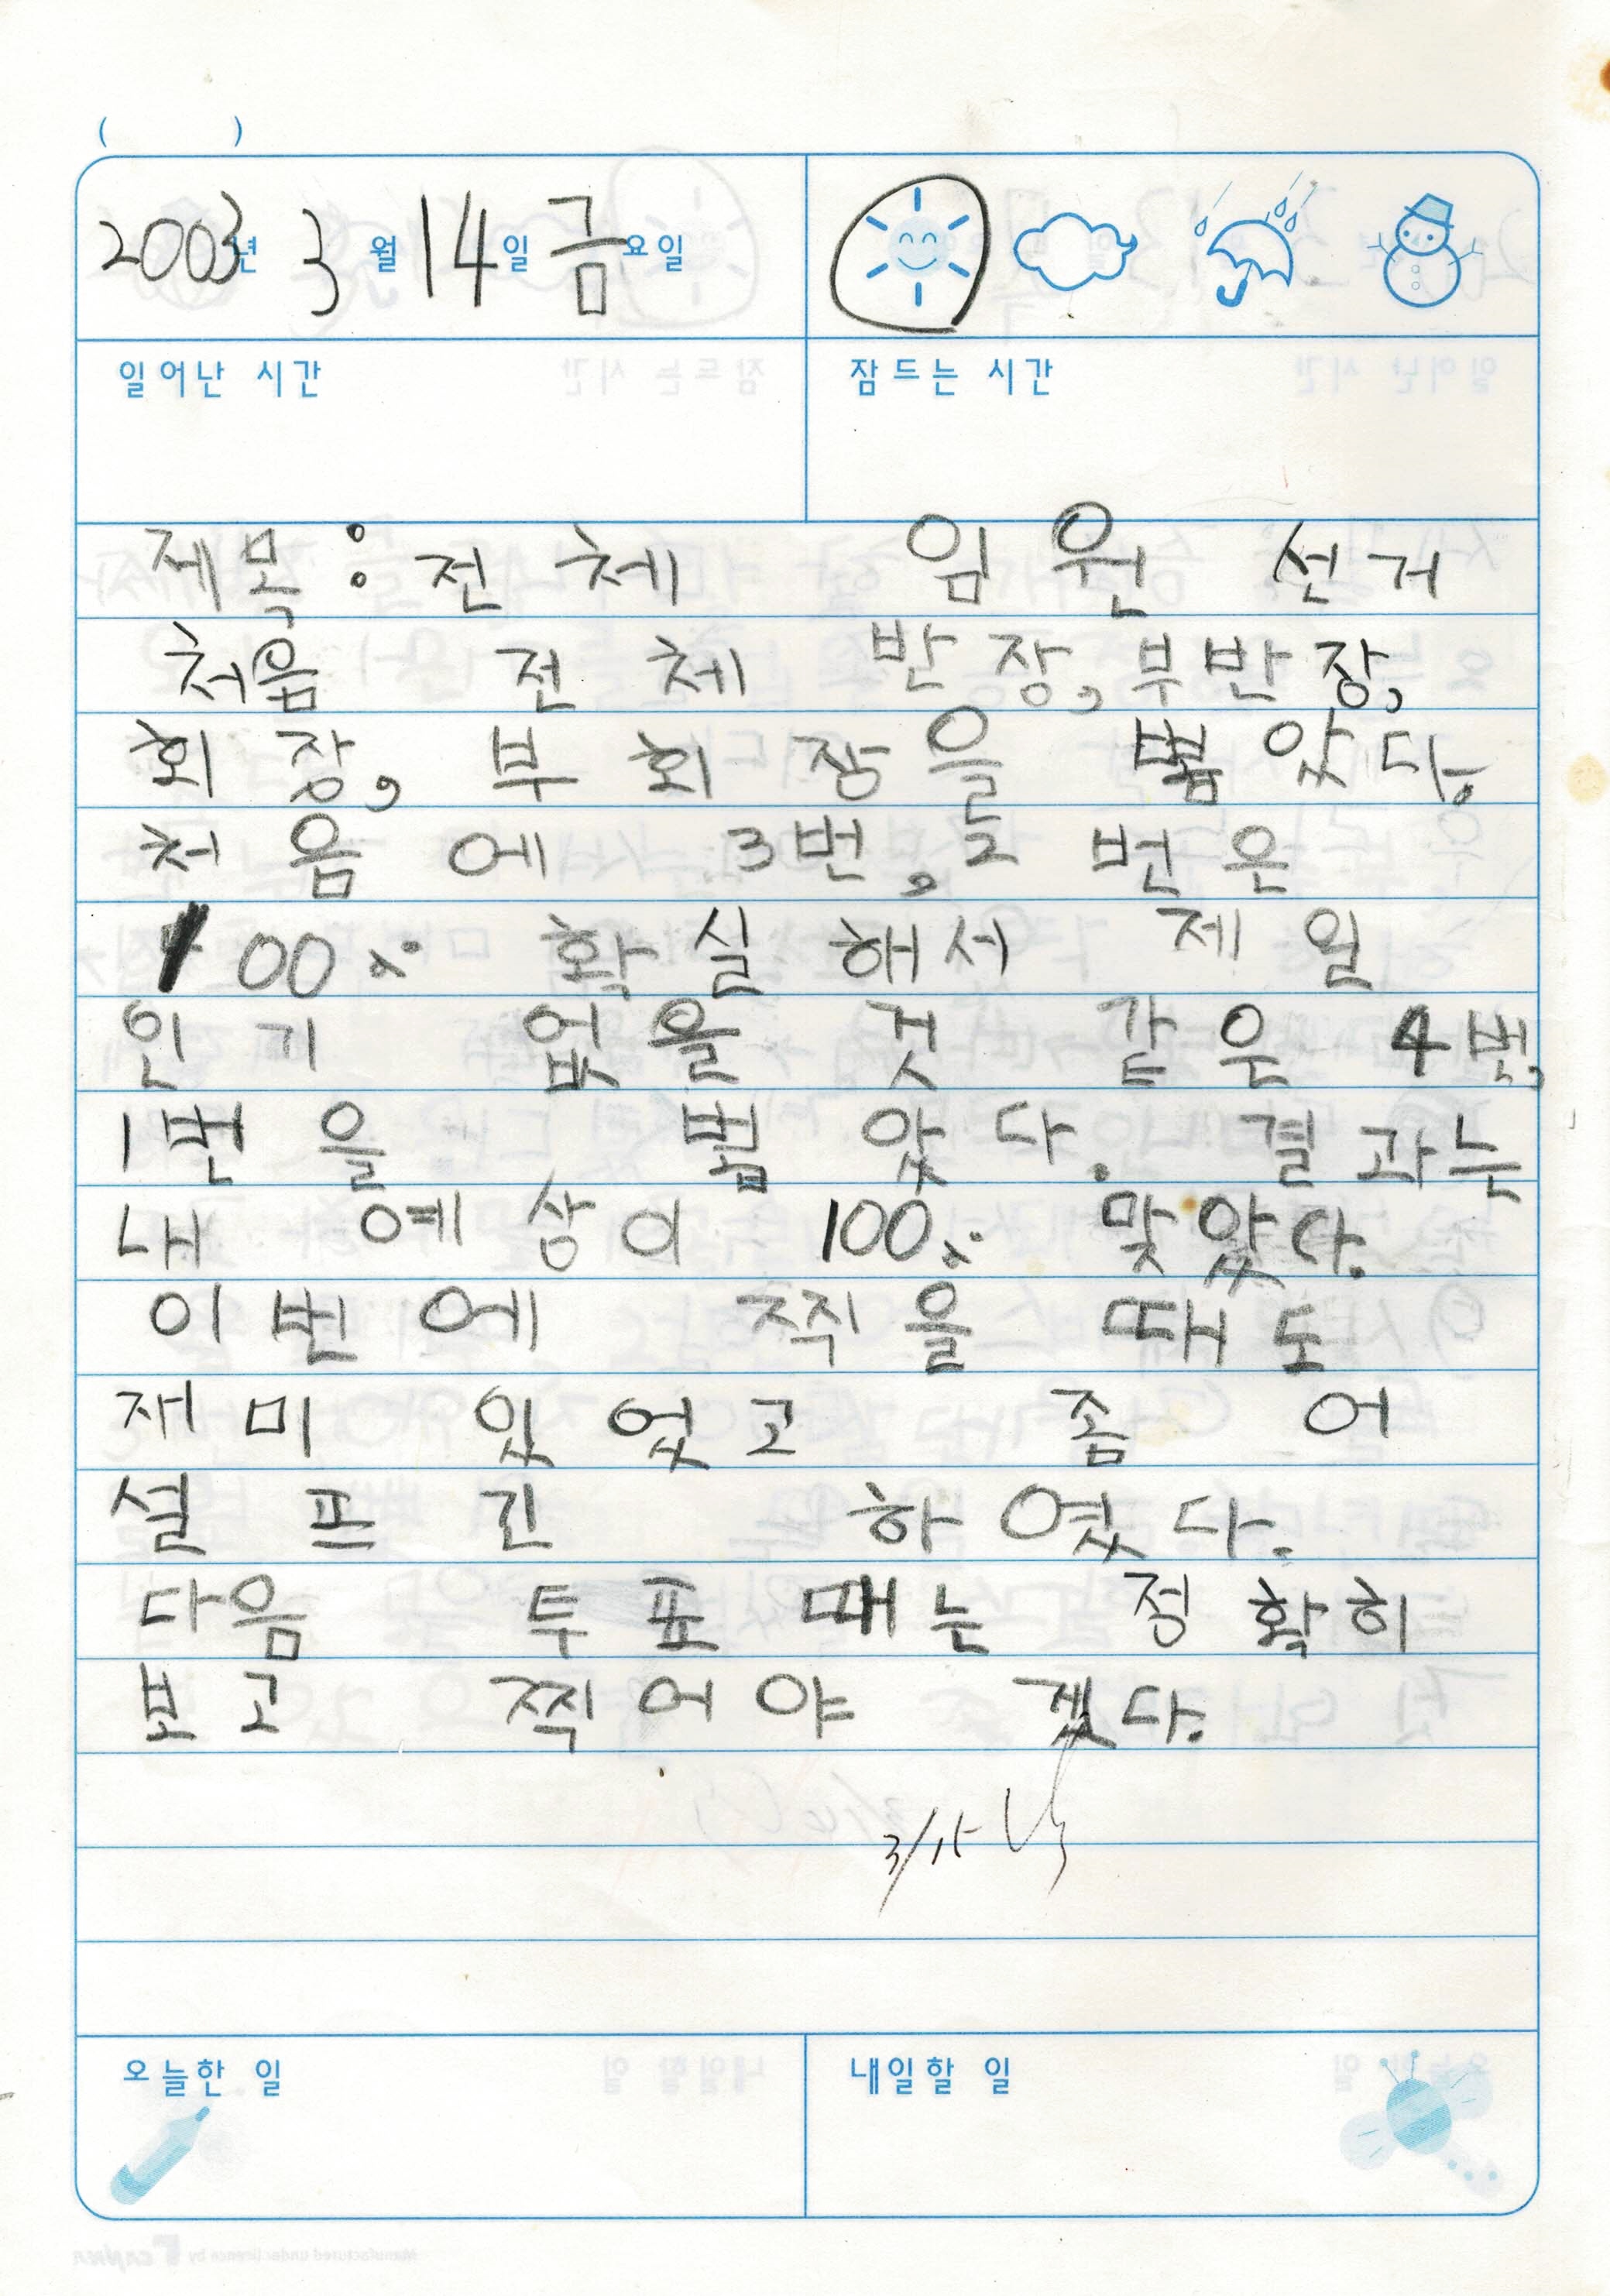 ( )
2003년 3월 14일 금요일
일어난 시간
잠드는 시간
제목: 전체 임원 선거
처음 전체 반장, 부반장,
회장, 부회장을 뽑았다.
처음에 3번, 2번은
100% 확실해서 제일
인기 없을 것 같은 4번,
1번을 뽑았다. 결과는
내 예상이 100% 맞았다.
이번에 찍을 때도
재미 있었고 좀 어
설프긴 하였다.
다음 투표 때는 정확히
보고 찍어야 겠다.
3/15
오늘한 일
내일할 일